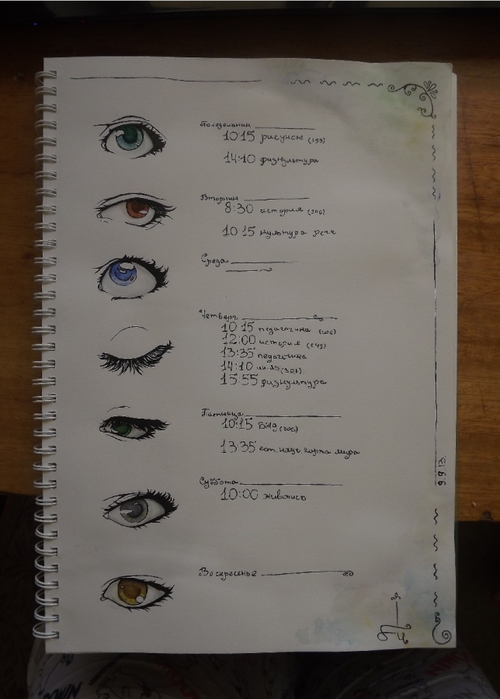 Понедельник
10 15 рисунок (199)
14:10 физкультура
Вторник
8:30 история
10 15 культура речи
Среда
Четверг
10 15 педагогика
12:00 история
13:35 педагогика
14:10
15:55 физкультура
Пятница
10:15
13 35 ест. науч. карта мира
Суббота
10:00 живопись
Воскресенье
9.9.13.